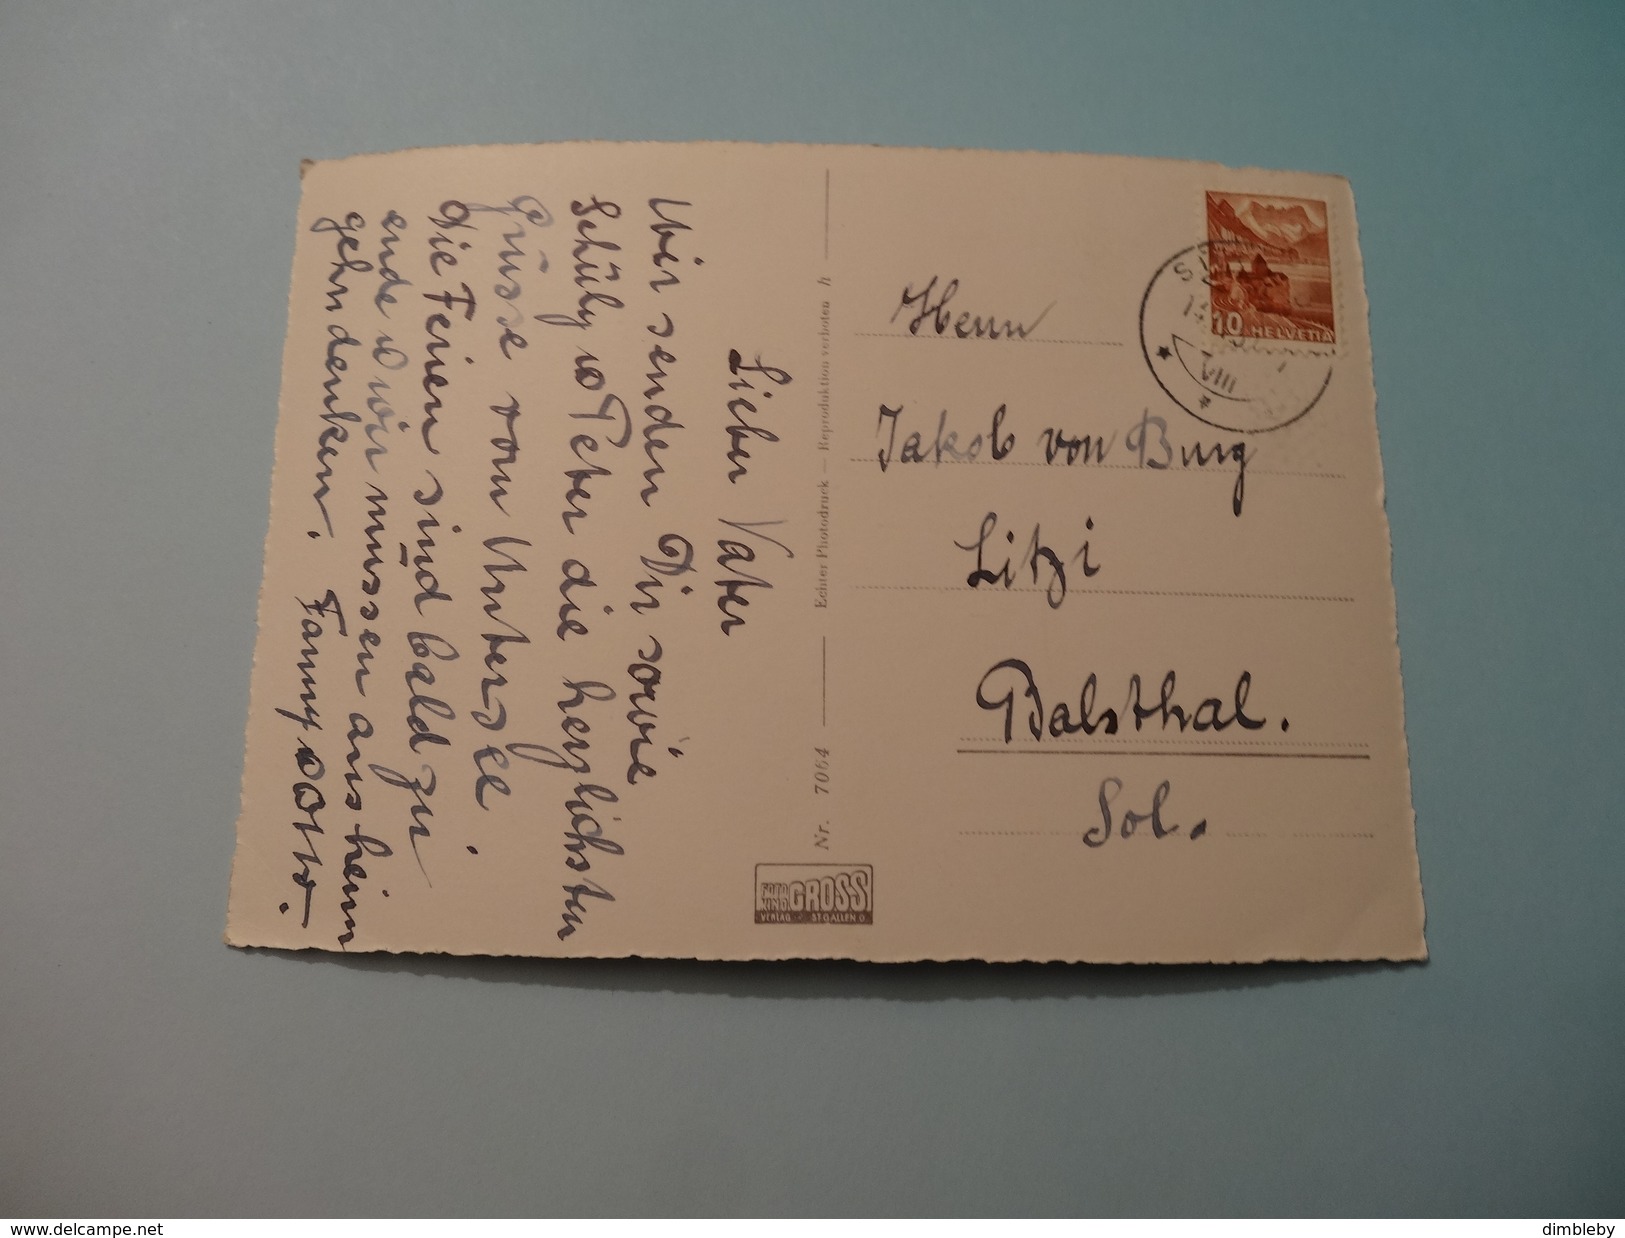 Lieber Vater
Wir senden Dir sowie
Schüly u Peter die herzlichsten
Grüsse vom Untersee.
Die Ferien sind bald zu
ende u wir müssen ans heim
gehn denken. Fanny u Otto.
Nr. 7064 — Echter Photodruck — Reproduktion verboten h
FOTO
KINO GROSS
VERLAG ST. GALLEN O
10 HELVETIA
VIII
Herrn
Jakob von Burg
Litzi
Balsthal.
Sol.
www.delcampe.net
dimbleby